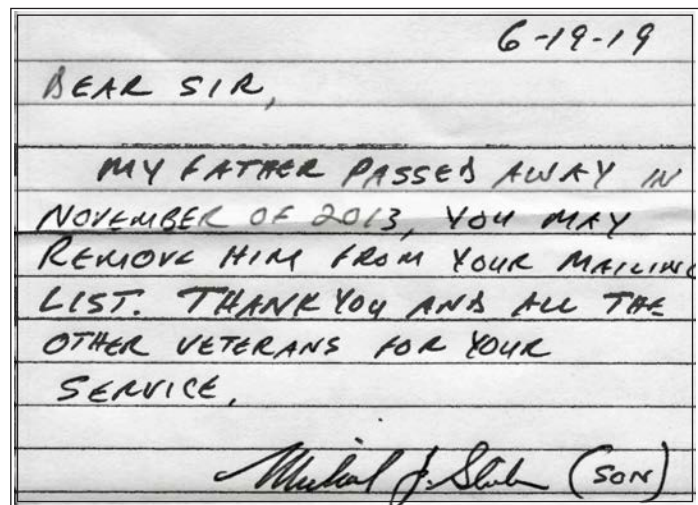 6-19-19
DEAR SIR,
MY FATHER PASSED AWAY IN
NOVEMBER OF 2013, YOU MAY
REMOVE HIM FROM YOUR MAILING
LIST. THANK YOU AND ALL THE
OTHER VETERANS FOR YOUR
SERVICE.
Michael J. (SON)